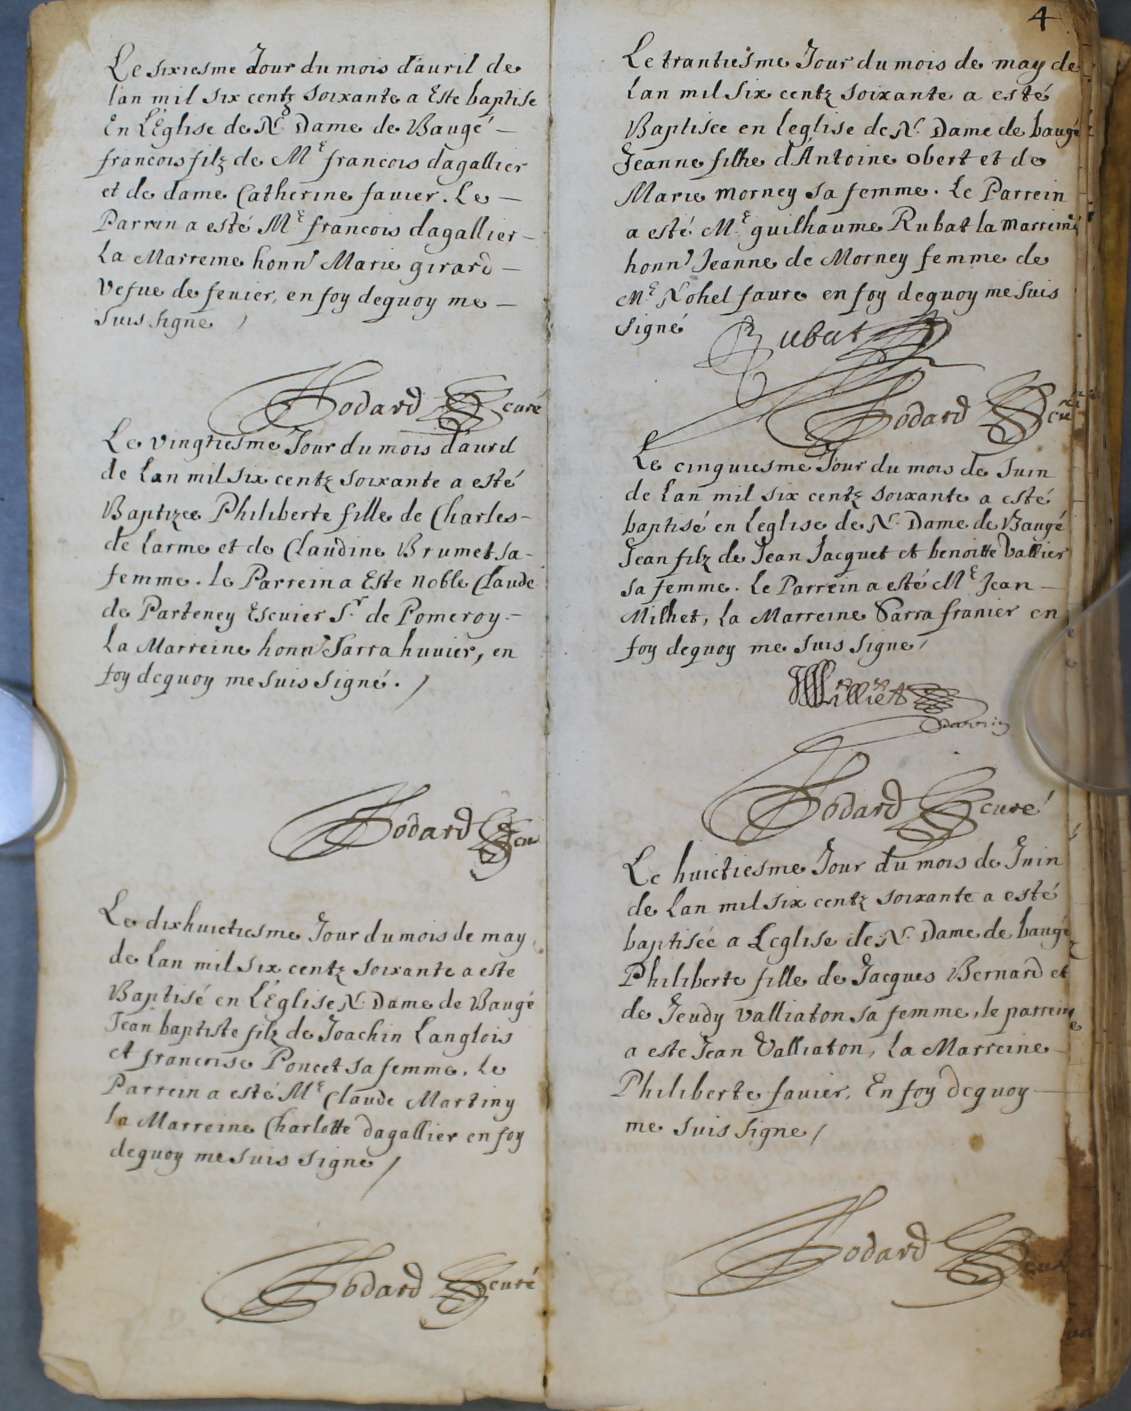 Le sixiesme Jour du mois d'auril de
lan mil six centz soixante a Este baptise
En L'Eglise de N. Dame de Baugé
francois filz de Me francois dagallier
et de dame Catherine fauier. Le
Parrin a esté Me francois dagallier
La Marreine honn. Marie girard
Vefue de feuier, en foy dequoy me
suis signe /
Hodard curé
Le vingtiesme Jour du mois d'auril
de lan mil six centz soixante a esté
Baptizee Philiberte fille de Charles
de larme et de Claudine Brumet sa
femme. Le Parrein a Este noble Claude
de Parteney Escuier Sr. de Pomeroy.
La Marreine honn. Sarra huuier, en
foy dequoy me suis signé. /
Hodard cu
Le dixhuictiesme Jour du mois de may
de lan mil six centz soixante a este
Baptisé en L'Eglise N. Dame de Baugé
Jean baptiste filz de Joachin Langlois
et francoise Poncet sa femme. Le
Parrein a esté Me Claude Martiny
la Marreine Charlotte dagallier en foy
dequoy me suis signe /
Hodard curé
4
Le trantiesme Jour du mois de may de
Lan mil six centz soixante a esté
Baptisee en leglise de N. Dame de baugé
Jeanne filhe d'Antoine Obert et de
Marie Morney sa femme. Le Parrein
a esté Me guilhaume Rubat la marreine
honn. Jeanne de Morney femme de
Me Nohel faure en foy dequoy me suis
signé
Rubat
Hodard cu
Le cinquiesme Jour du mois de Juin
de Lan mil six centz soixante a esté
baptisé en leglise de N. Dame de Baugé
Jean filz de Jean Jacquet et benoitte Vallier
sa femme. Le Parrein a esté Me Jean
Milhet, La Marreine Sarra franier en
foy dequoy me suis signe /
Milliet
parrin
Hodard curé
Le huictiesme Jour du mois de Juin
de Lan mil six centz soixante a esté
baptisée a Leglise de N. Dame de baugé
Philiberte fille de Jacques Bernard et
de Jeudy Valliaton sa femme, le parrein
a este Jean Valliaton, La Marreine
Philiberte fauier, En foy dequoy
me suis signe /
Hodard cur